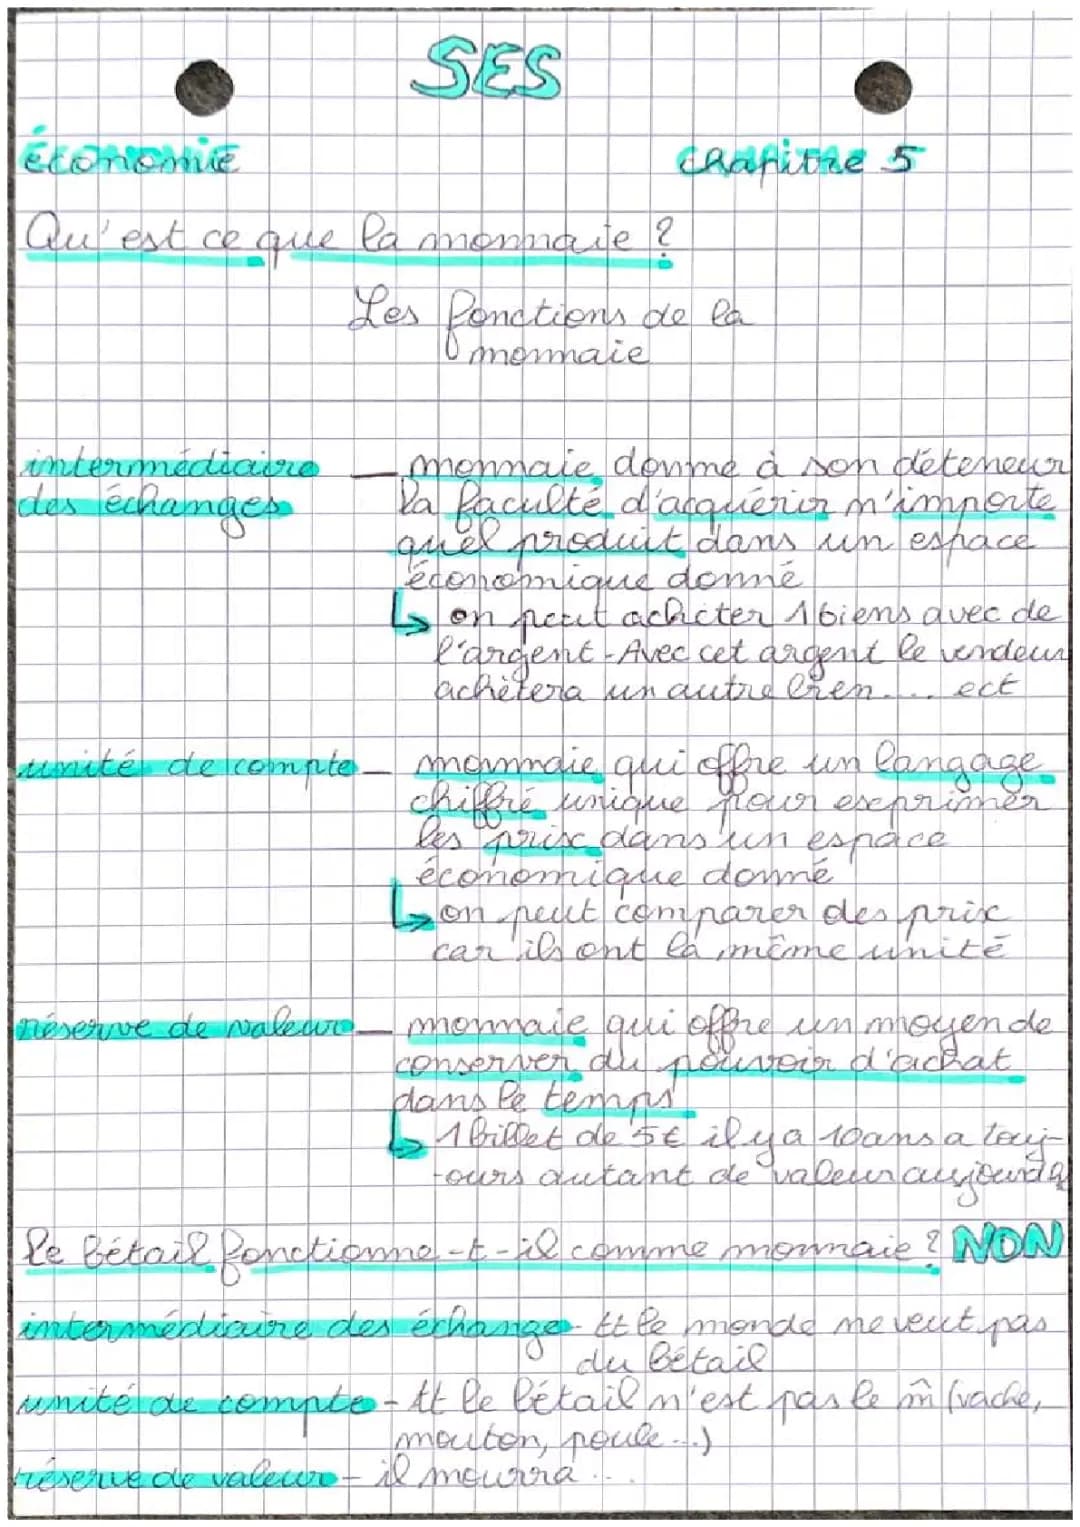 SES
économie chapitre 5
Qu'est ce que la monnaie ?
Les fonctions de la
monnaie
intermédiaire — monnaie donne à son déteneur
des échanges la faculté d'acquérir n'importe
quel produit dans un espace
économique donné
↳ on peut acheter 1 biens avec de
l'argent - Avec cet argent le vendeur
achètera un autre bien.... ect
unité de compte — monnaie qui offre un langage
chiffré unique pour exprimer
les prix dans un espace
économique donné
↳ on peut comparer des prix
car ils ont la même unité
réserve de valeur — monnaie qui offre un moyen de
conserver du pouvoir d'achat
dans le temps
↳ 1 billet de 5€ il y a 10 ans a touj-
-ours autant de valeur
le bétail fonctionne-t-il comme monnaie ? NON
intermédiaire des échange - tt le monde ne veut pas
du bétail
unité de compte - tt le bétail n'est pas le m̂ (vache,
mouton, poule...)
réserve de valeur - il mourra ...